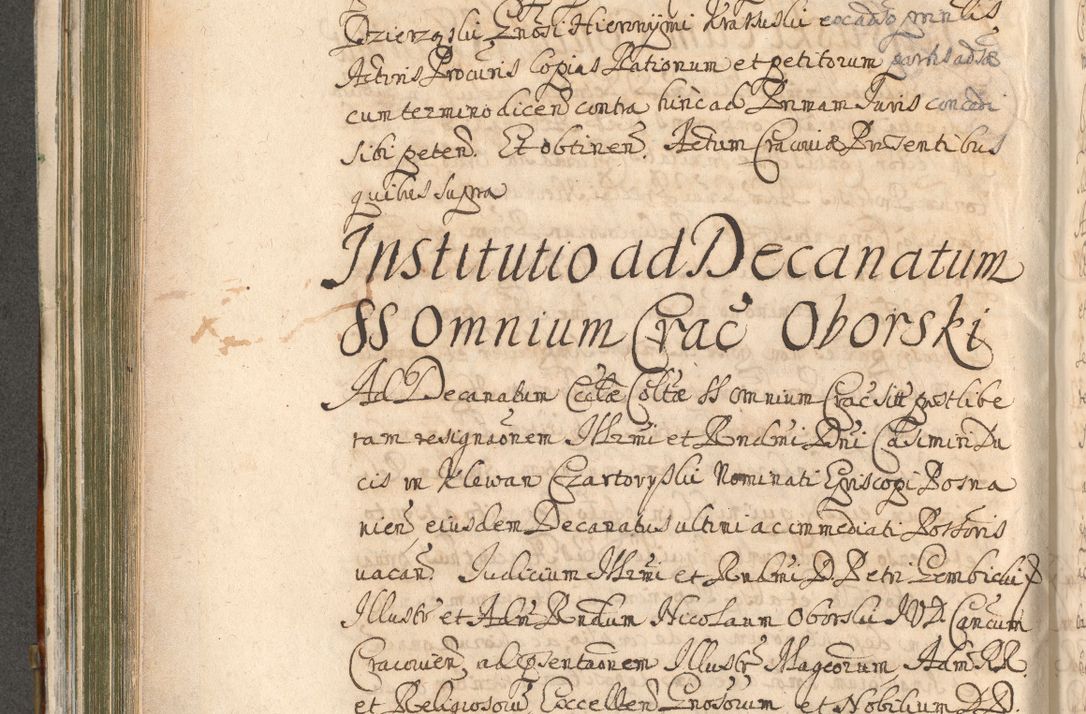 Dzierzgslii Gnosi Hieronymi Krakuslii eocadso prnlis
Actoris Procuris Copias Rationum et petitorum partis adsæ
cum termino dicen̄ contra hinc ad Primam Juris concedi
sibi peten̄. Et obtinen̄. Actum Cracoviæ Præsentibus
quibus supra
Institutio ad Decanatum
SS Omnium Crac̄ Oborski
Ad Decanatum Ecclæ Collæ SS omnium Crac̄ sitt̄ post libe
ram resignaōnem Illmi et Rndmi Dn̄i Casimiri Du
cis in Klewan Czartoryslii Nominati Episcopi Posna
nien̄ eiusdem Decanatus ultimi ac immediati Possōris
vacan̄. Judicium Illmi et Rndmi D Petri Gembiclii P
Illustr̄ et Adm̄ Rndum Nicolaum Oborslii JVD Cancum
Cracovien̄ ad p̄sentaōnem Illustr̄ Magcorum Adm̄ RR
et Religiosorū Excellen̄ Gnosorum et Nobilium DD.